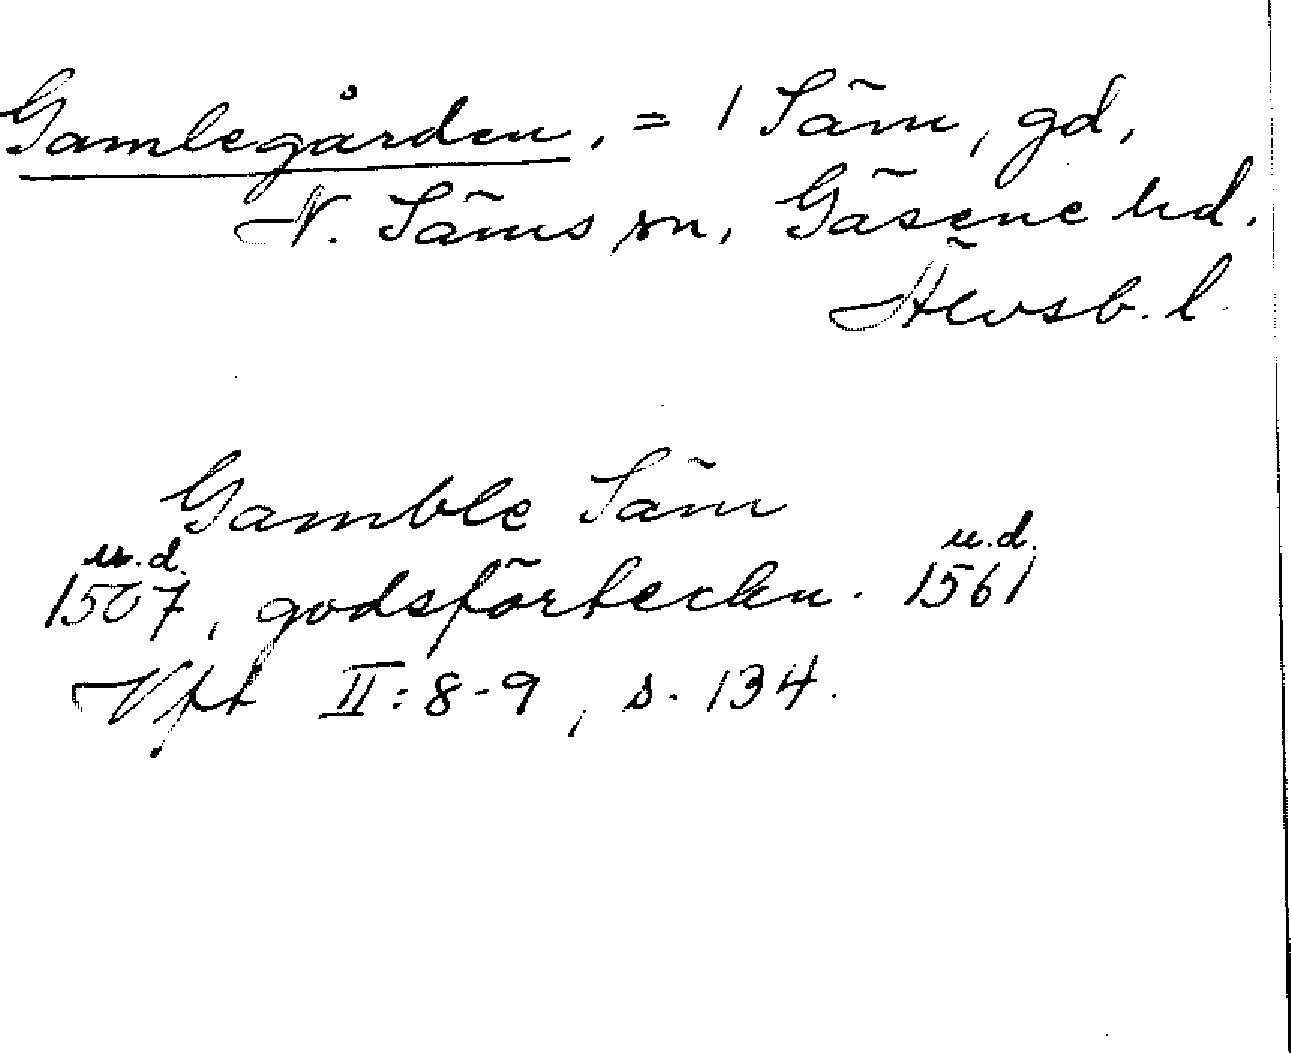 Gamlegården, = 1 Säm, gd,
N. Säms sn, Gäsene hd.
Älvsb. l.
Gamble Säm
u.d. u.d.
1507, godsförteckn. 1561
Vft II: 8-9, s. 134.